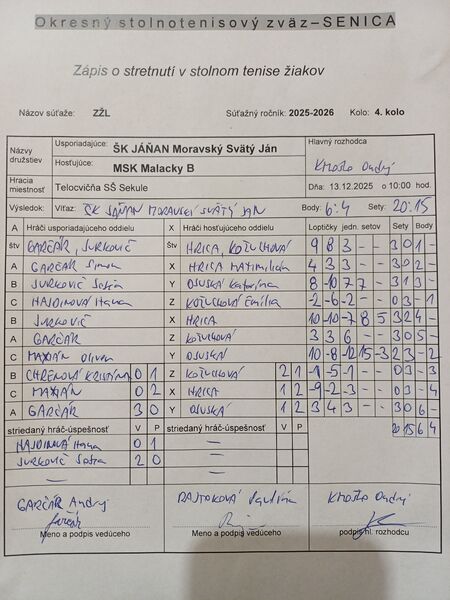 Okresný stolnotenisový zväz–SENICA
Zápis o stretnutí v stolnom tenise žiakov
Názov súťaže: ZŽL Súťažný ročník: 2025-2026 Kolo: 4. kolo
Názvy družstiev Usporiadajúce: ŠK JÁŇAN Moravský Svätý Ján Hlavný rozhodca
Hosťujúce: MSK Malacky B
Hracia miestnosť Telocvičňa SŠ Sekule Dňa: 13.12.2025 o 10:00 hod.
Výsledok: Víťaz: ŠK JÁŇAN MORAVSKÝ SVÄTÝ JÁN Body: 6:4 Sety: 20:15
A Hráči usporiadajúceho oddielu X Hráči hosťujúceho oddielu Loptičky jedn. setov Sety Body
štv GARČÁR, JURKOVIČ Štv HRICA, KOŽUCHOVÁ 9 8 3 - - 3 0 1 -
A GARČÁR Simon X HRICA MAXIMILIÁN 4 3 3 - - 3 0 2 -
B JURKOVIČ Y Katarína 8 -10 7 7 - 3 1 3 -
C HAJDINOVÁ Hana Z KOŽUCHOVÁ Emília -2 -6 -2 - - 0 3 - 1
B JURKOVIČ X HRICA 10 -10 -7 8 5 3 2 4 -
A GARČÁR Z KOŽUCHOVÁ 3 3 6 - - 3 0 5 -
C MAXIÁN Oliver Y 10 -8 -12 15 -3 2 3 - 2
B CHRENOVÁ KRISTÍNA 0 1 Z KOŽUCHOVÁ 2 1 -1 -5 -1 - - 0 3 - 3
C MAXIÁN 0 2 X HRICA 1 2 -9 -2 -3 - - 0 3 - 4
A GARČÁR 3 0 Y 1 2 3 4 3 - - 3 0 6 -
striedaný hráč-úspešnosť V P striedaný hráč-úspešnosť V P 20 15 6 4
HAJDINOVÁ Hana 0 1 —
JURKOVIČ 2 0 —
— —
GARČÁR Andrej
Meno a podpis vedúceho Meno a podpis vedúceho podpis hl. rozhodcu